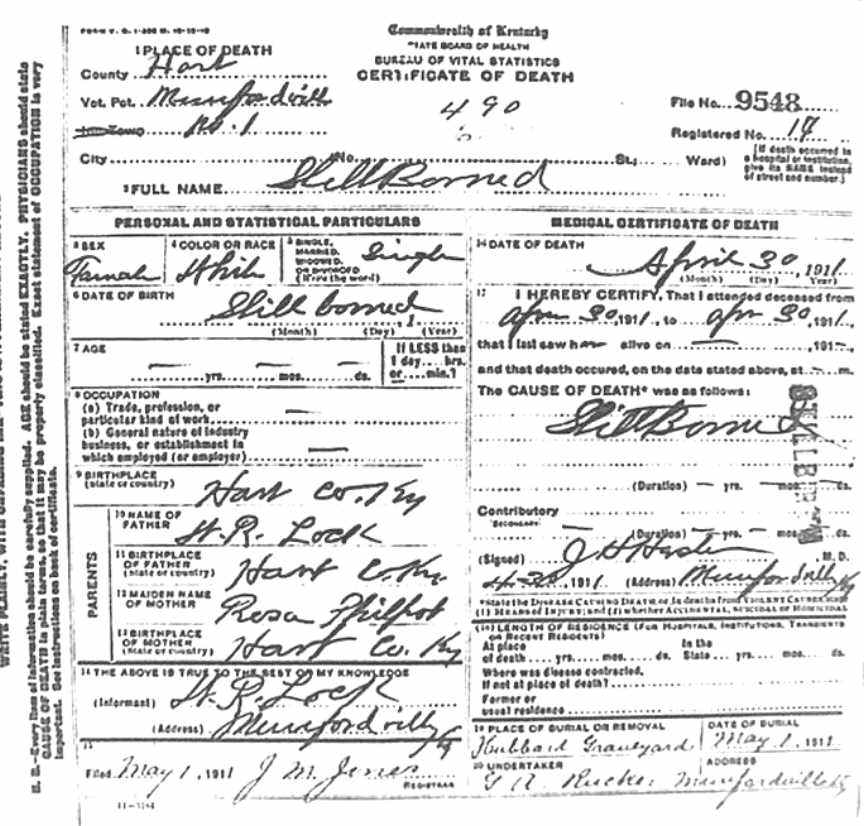 FORM V. S. 1-
Commonwealth of Kentucky
STATE BOARD OF HEALTH
BUREAU OF VITAL STATISTICS
CERTIFICATE OF DEATH
1 PLACE OF DEATH
County Hart
Vot. Pct. Munfordvill
Inc. Town No. 1
490
File No. 9548
Registered No. 17
City No. St.; Ward)
[If death occurred in a hospital or institution, give its NAME instead of street and number.]
2 FULL NAME StillBorned
PERSONAL AND STATISTICAL PARTICULARS
3 SEX
Famale
4 COLOR OR RACE
White
5 SINGLE, MARRIED, WIDOWED, OR DIVORCED (Write the word)
Single
6 DATE OF BIRTH
Still borned, 1
(Month) (Day) (Year)
7 AGE
— yrs. — mos. — ds.
If LESS than 1 day... hrs. or... min.?
8 OCCUPATION
(a) Trade, profession, or particular kind of work —
(b) General nature of industry business, or establishment in which employed (or employer) —
9 BIRTHPLACE (State or country)
Hart Co. Ky
PARENTS
10 NAME OF FATHER
R. Lock
11 BIRTHPLACE OF FATHER (State or country)
Hart Co. Ky.
12 MAIDEN NAME OF MOTHER
Rosa Philpot
13 BIRTHPLACE OF MOTHER (State or country)
Hart Co. Ky
14 THE ABOVE IS TRUE TO THE BEST OF MY KNOWLEDGE
(Informant) R. Lock
(Address) Munfordvill Ky
15
Filed May 1, 1911 J. M. Jones
REGISTRAR
11-3184
MEDICAL CERTIFICATE OF DEATH
16 DATE OF DEATH
April 30, 1911
(Month) (Day) (Year)
17 I HEREBY CERTIFY, That I attended deceased from
Apr 30, 1911, to Apr 30, 1911,
that I last saw h alive on —, 191—,
and that death occured, on the date stated above, at — m.
The CAUSE OF DEATH* was as follows:
StillBorned
STILLBORN
(Duration) — yrs. — mos. — ds.
Contributory
SECONDARY
(Duration) — yrs. — mos. — ds.
(Signed) J H Hester, M. D.
4-30, 1911 (Address) Munfordvill Ky
*State the DISEASE CAUSING DEATH, or, in deaths from VIOLENT CAUSES, state (1) MEANS OF INJURY; and (2) whether ACCIDENTAL, SUICIDAL or HOMICIDAL
(18) LENGTH OF RESIDENCE (FOR HOSPITALS, INSTITUTIONS, TRANSIENTS OR RECENT RESIDENTS)
At place of death yrs. mos. ds. In the State yrs. mos. ds.
Where was disease contracted,
If not at place of death?
Former or usual residence
19 PLACE OF BURIAL OR REMOVAL
Hubbard Graveyard
DATE OF BURIAL
May 1, 1911
20 UNDERTAKER
Rucker
ADDRESS
Munfordville Ky
N. B.—Every item of information should be carefully supplied. AGE should be stated EXACTLY. PHYSICIANS should state
CAUSE OF DEATH in plain terms, so that it may be properly classified. Exact statement of OCCUPATION is very
important. See instructions on back of certificate.